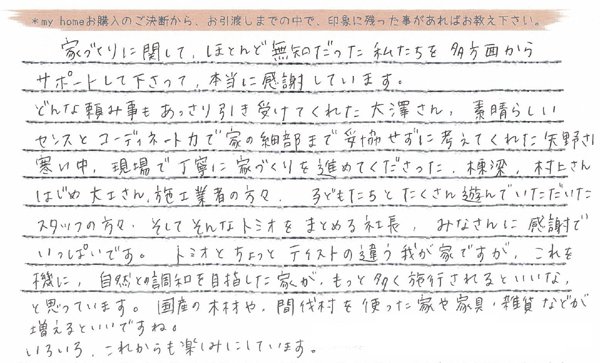 *my homeお購入のご決断から、お引渡しまでの中で、印象に残った事があればお教え下さい。
家づくりに関して、ほとんど無知だった私たちを多方面から
サポートして下さって、本当に感謝しています。
どんな頼み事もあっさり引き受けてくれた大澤さん、素晴らしい
センスとコーディネート力で家の細部まで妥協せずに考えてくれた矢野さん
寒い中、現場で丁寧に家づくりを進めてくださった、棟梁、村上さん
はじめ大工さん、施工業者の方々、子どもたちとたくさん遊んでいただいた
スタッフの方々、そしてそんなトミオをまとめる社長、みなさんに感謝で
いっぱいです。トミオとちょっとテイストの違う我が家ですが、これを
機に、自然との調和を目指した家が、もっと多く施行されるといいな、
と思っています。国産の木材や、間伐材を使った家や家具、雑貨などが
増えるといいですね。
いろいろ、これからも楽しみにしています。